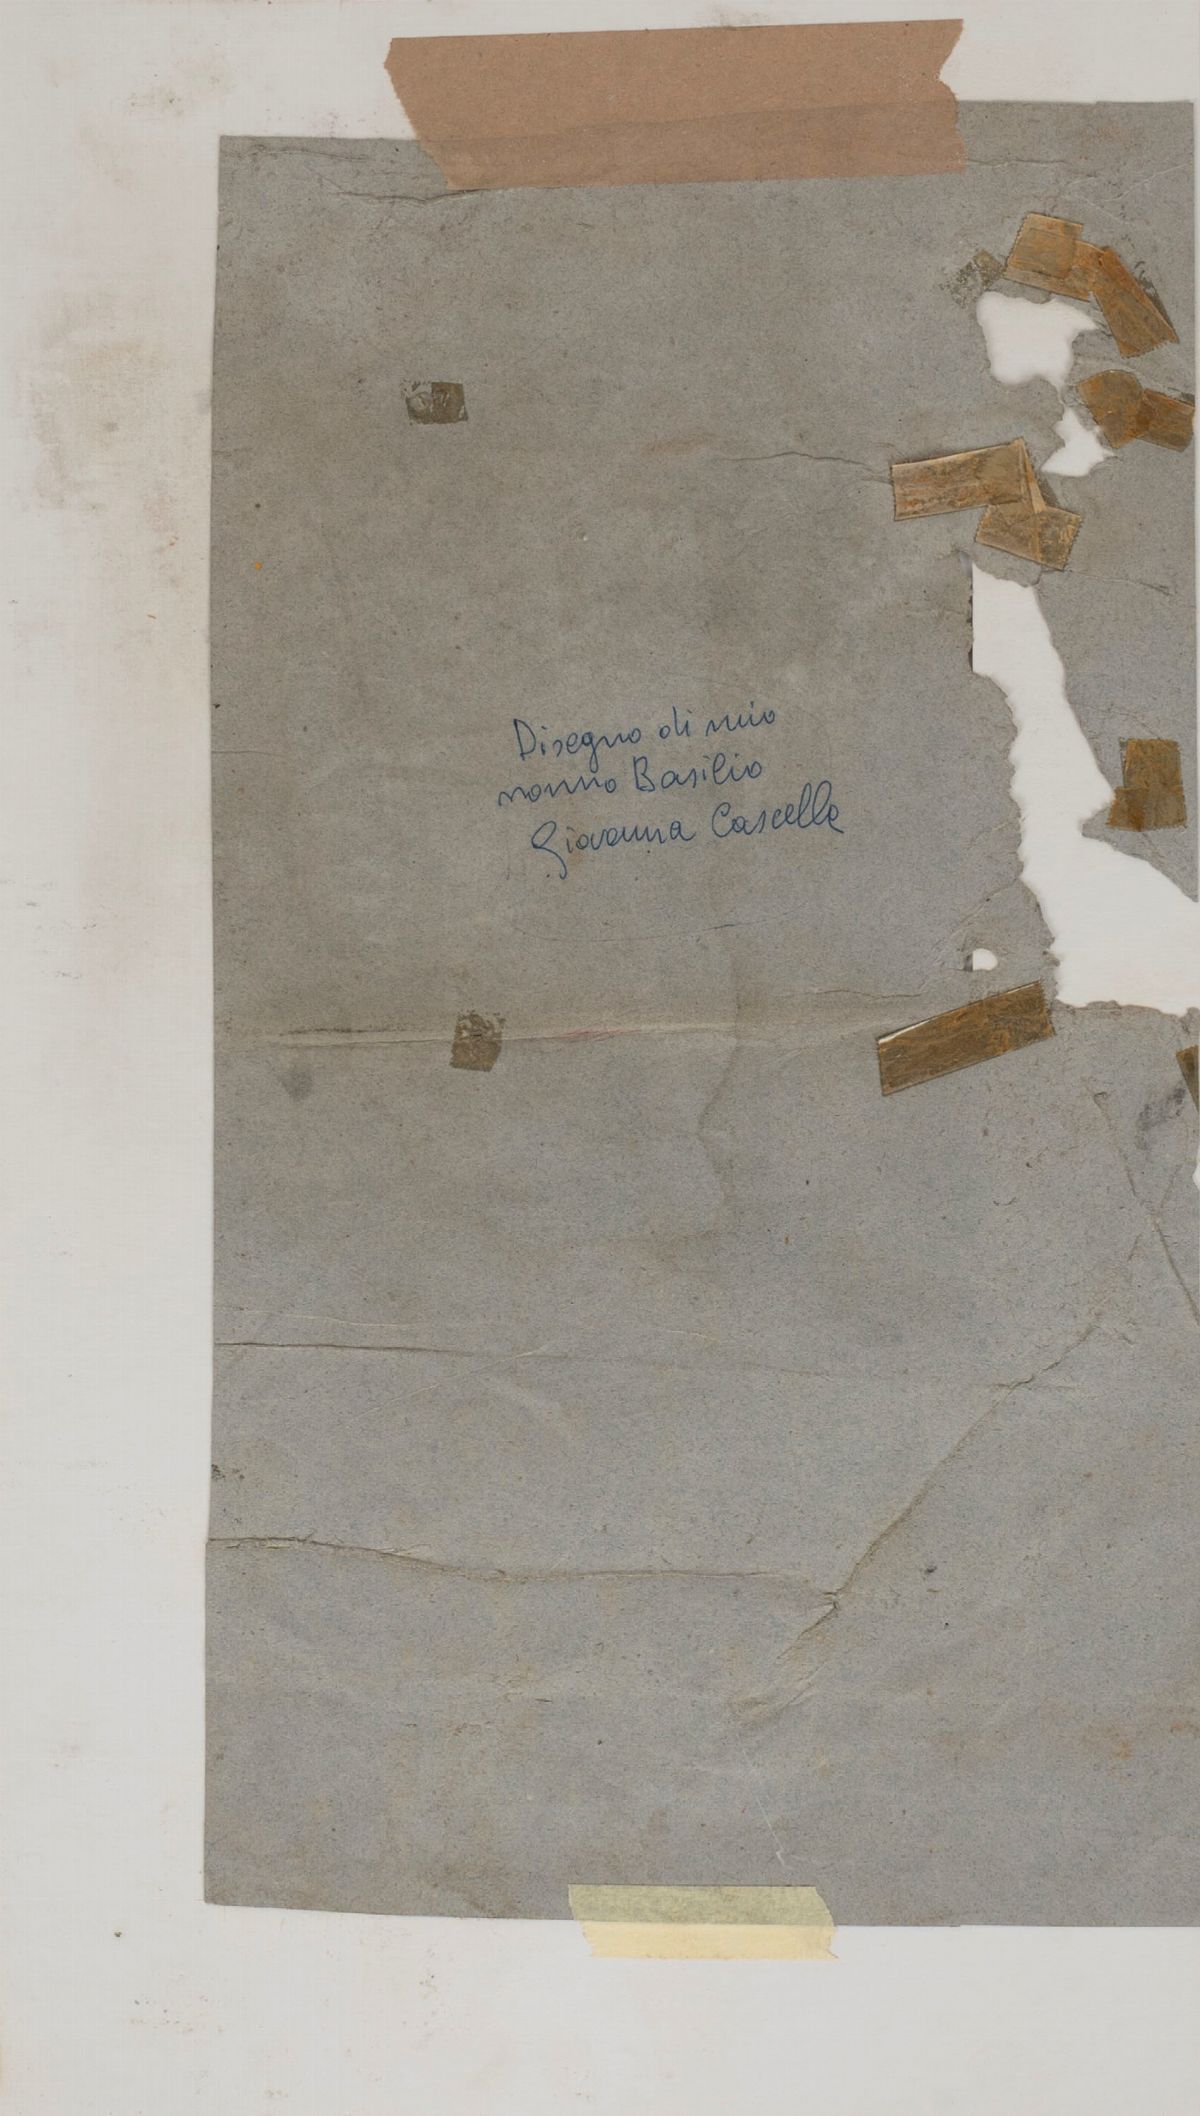 Disegno di mio
nonno Basilio
Giovanna Cascella